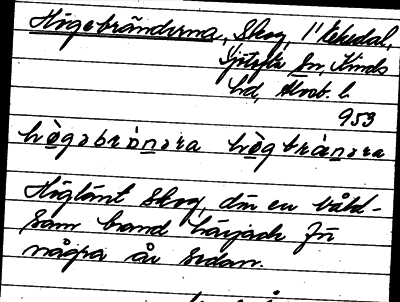 Högebränderna, Skog, i Ekedal,
Sjötofta sn, Kinds
hd, Älvsb. l.
953
hògəbrànəra hògbrànəra
Höglänt skog, där en våld-
sam brand härjade för
några år sedan.